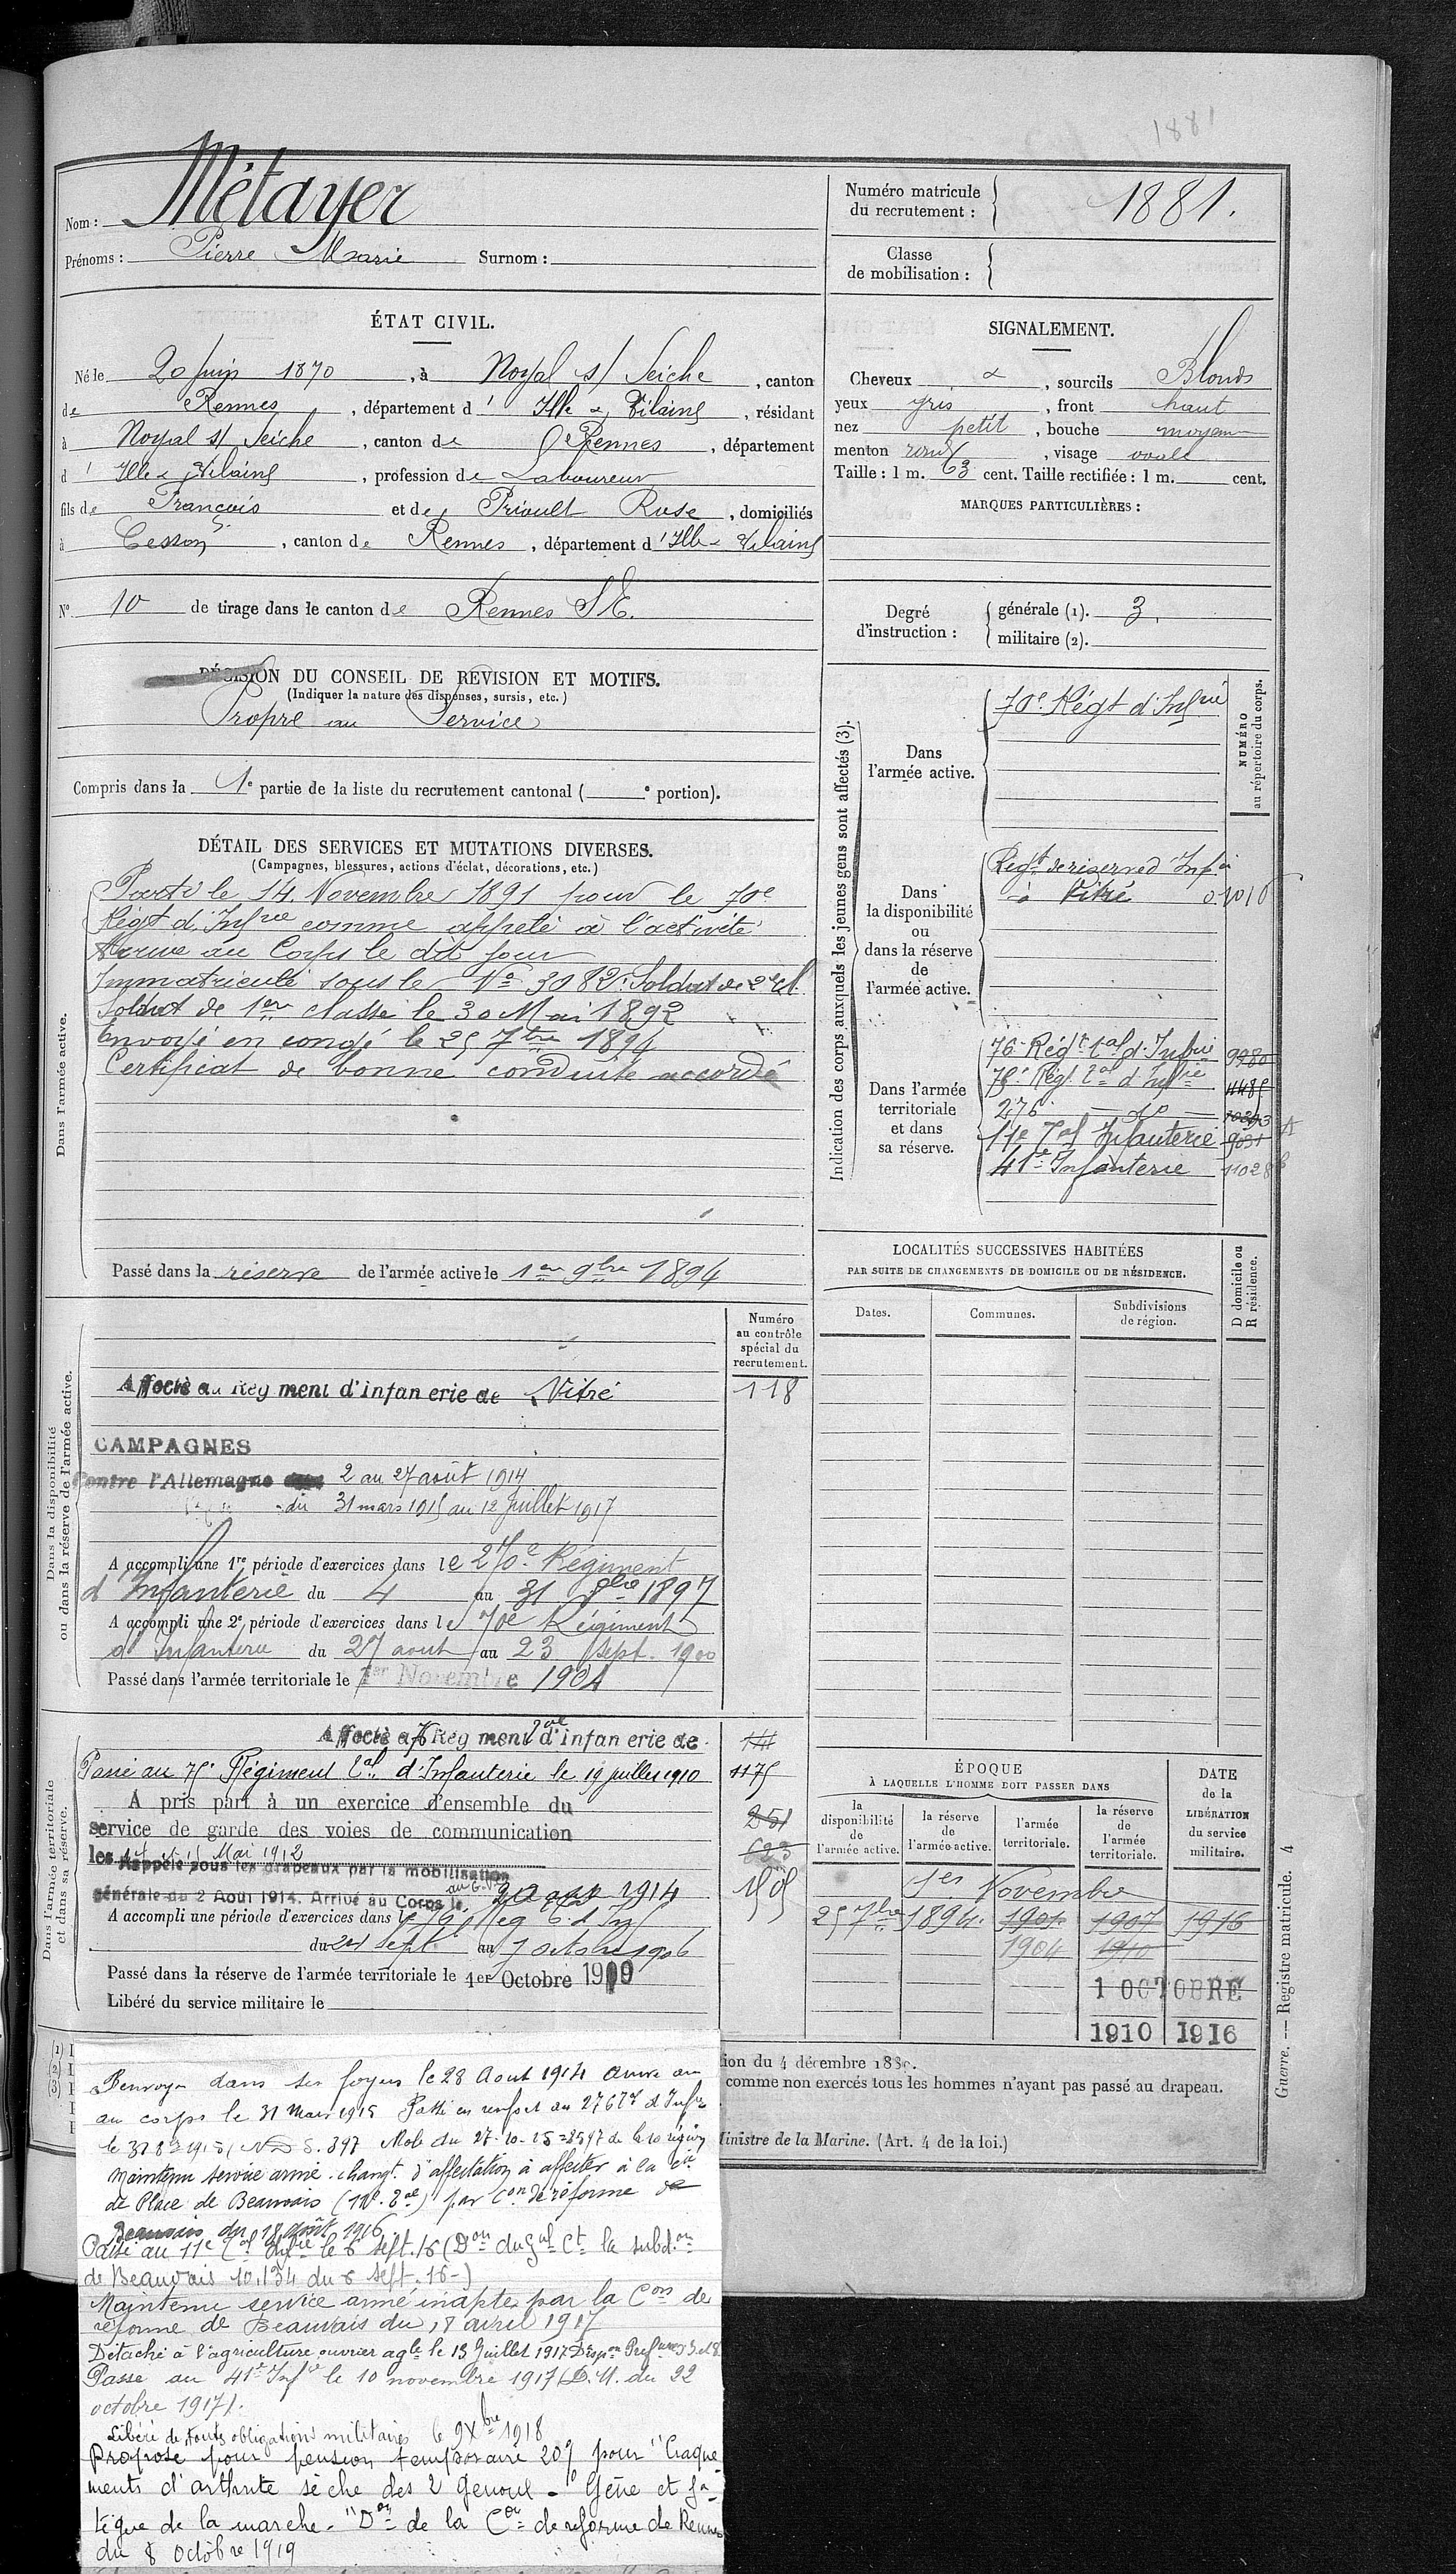 1881
Nom : Métayer
Prénoms : Pierre Marie Surnom :
Numéro matricule du recrutement : 1881.
Classe de mobilisation :
ÉTAT CIVIL.
Né le 20 Juin 1870, à Noyal s/ Seiche, canton
de Rennes, département d' Ille & Vilaine, résidant
à Noyal s/ Seiche, canton de Rennes, département
d' Ille & Vilaine, profession de Laboureur
fils de François et de Prioult Rose, domiciliés
à Cesson, canton de Rennes, département d' Ille & Vilaine
N° 10 de tirage dans le canton de Rennes S E.
SIGNALEMENT.
Cheveux &, sourcils Blonds
yeux gris, front haut
nez petit, bouche moyenne
menton rond, visage ovale
Taille : 1 m. 63 cent. Taille rectifiée : 1 m. cent.
MARQUES PARTICULIÈRES :
Degré d'instruction : générale (1). 3.
militaire (2).
DÉCISION DU CONSEIL DE REVISION ET MOTIFS.
(Indiquer la nature des dispenses, sursis, etc.)
Propre au Service
Compris dans la 1e partie de la liste du recrutement cantonal ( e portion).
DÉTAIL DES SERVICES ET MUTATIONS DIVERSES.
(Campagnes, blessures, actions d'éclat, décorations, etc.)
Dans l'armée active.
Parti le 14 Novembre 1891 pour le 70e
Régt d'Infrie comme appelé à l'activité
Arrivé au Corps le dit jour
Immatriculé sous le No 3082. Soldat de 2e cl
Soldat de 1ere classe le 30 Mai 1892
Envoyé en congé le 25 7bre 1894
Certificat de bonne conduite accordé
Passé dans la réserve de l'armée active le 1er 9bre 1894
Indication des corps auxquels les jeunes gens sont affectés (3).
NUMÉRO au répertoire du corps.
Dans l'armée active.
70e Régt d'Infrie
Dans la disponibilité ou dans la réserve de l'armée active.
Regt de réserve d'Infie
à Vitré 01016
Dans l'armée territoriale et dans sa réserve.
76e Régt tal d'Infrie 9980
75e Régt tal d'Infie 4485
276 do
11e Tal Infanterie 9031
41e Infanterie 11028
LOCALITÉS SUCCESSIVES HABITÉES
PAR SUITE DE CHANGEMENTS DE DOMICILE OU DE RÉSIDENCE.
D domicile ou R résidence.
Dates. Communes. Subdivisions de région.
Dans la disponibilité ou dans la réserve de l'armée active.
Numéro au contrôle spécial du recrutement.
Affecté au Rég ment d'infan erie de Vitré 118
CAMPAGNES
Contre l'Allemagne 2 au 27 août 1914
du 31 mars 1915 au 12 Juillet 1917
A accompli une 1re période d'exercices dans le 270e Régiment
d'Infanterie du 4 au 31 8bre 1897
A accompli une 2e période d'exercices dans le 70e Régiment
d'Infanterie du 27 août au 23 Sept. 1900
Passé dans l'armée territoriale le 1er Novembre 1904
Dans l'armée territoriale et dans sa réserve.
Affecté au 76 Rég ment tal d'infan erie de 141
Passé au 75e Régiment tal d'Infanterie le 19 juillet 1910 1175
A pris part à un exercice d'ensemble du 251
service de garde des voies de communication
les Mai 1912
Rappelé sous les drapeaux par la mobilisation
générale du 2 Aout 1914. Arrivé au Corps le 20 août 1914
A accompli une période d'exercices dans le 76 Reg t. d'Inf
du 24 Sept au 7 octobre 1906
Passé dans la réserve de l'armée territoriale le 1er Octobre 1910
Libéré du service militaire le
ÉPOQUE
À LAQUELLE L'HOMME DOIT PASSER DANS
DATE de la LIBÉRATION du service militaire.
la disponibilité de l'armée active. la réserve de l'armée active. l'armée territoriale. la réserve de l'armée territoriale.
1er Novembre
25 7bre 1894. 1901 1907 1916
1904 1910
1 OCTOBRE
1910 1916
Guerre. — Registre matricule. 4
(1) I
(2) I
(3) I
tion du 4 décembre 1889.
comme non exercés tous les hommes n'ayant pas passé au drapeau.
Ministre de la Marine. (Art. 4 de la loi.)
Renvoyé dans ses foyers le 28 Aout 1914 Arrivé au
au corps le 31 Mars 1915 Passé en renfort au 276 Tal d'Infie
le 31 8bre 1915 S. 397 Mob du 27-10-15 = 8597 de la 10 région
Maintenu service armé. changt. d'affectation à affecter à la Cie
de Place de Beauvais par Con de réforme de
Beauvais du 18 août 1916
Passé au 11e Tal Infie le 6 sept. 16 (Don du Gal Ct la subdon
de Beauvais 10.134 du 6 sept. 16-)
Maintenu service armé inapte par la Con de
réforme de Beauvais du 18 avril 1917
Détaché à l'agriculture ouvrier agle le 13 Juillet 1917
Passé au 41e Infie le 10 novembre 1917 (D.M. du 22
octobre 1917).
Libéré de toutes obligations militaires le 9 Xbre 1918
Proposé pour pension temporaire 20% pour "Craque-
ments d'arthrite sèche des 2 Genoux - Gêne et fa-
tigue de la marche." Don de la Con de réforme de Rennes
du 8 Octobre 1919